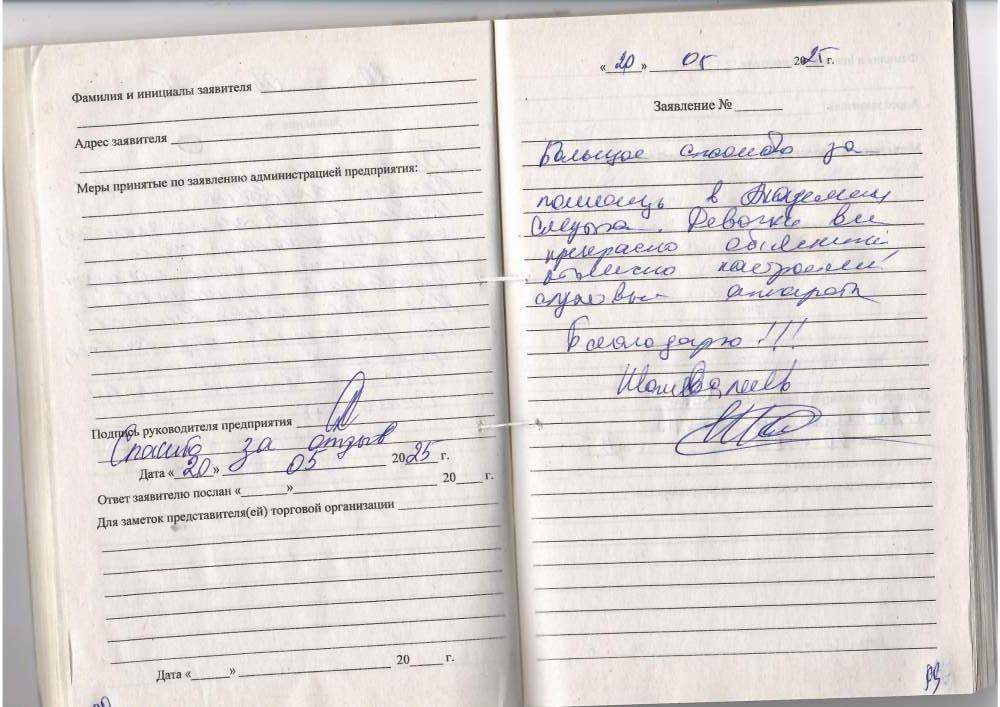 Фамилия и инициалы заявителя
Адрес заявителя
Меры принятые по заявлению администрацией предприятия:
Подпись руководителя предприятия
Спасибо за отзыв
Дата «20» 05 2025 г.
Ответ заявителю послан «______»______ 20____ г.
Для заметок представителя(ей) торговой организации
Дата «______» ______ 20____ г.
«20» 05 2025 г.
Заявление № ______
Большое спасибо за
помощь в Академии
Слуха. Девочки все
прекрасно объяснили
настроили
слуховые аппараты
Благодарю!!!